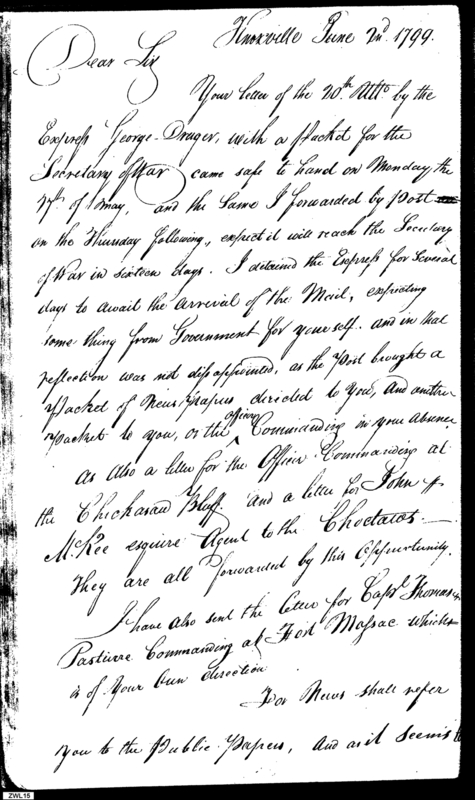 Knoxville June 2nd. 1799.
Dear Sir
Your letter of the 20th. Ulto. by the
Express George Druger, with a Packet for the
Secretary of War came safe to hand on Monday the
27th. of May, and the same I forwarded by Post
on the Thursday following, expect it will reach the Secretary
of War in sixteen days. I detained the Express for several
days to await the arrival of the Mail, expecting
some thing from Government for yourself. and in that
reflection was not disappointed, as the Post brought a
Packet of News Papers directed to You, and another
Packet to you, or the officer Commanding in your absence
as also a letter for the Officer Commanding at
the Chickasaw Bluff. and a letter for John
McKee esquire Agent to the Choctaws.
They are all forwarded by this Oppurtunity.
I have also sent the letter for Capt. Thomas
Pasturre Commanding at Fort Massac which
is of Your Own direction
For News shall refer
you to the Public Papers, and as it seems to
ZWL15